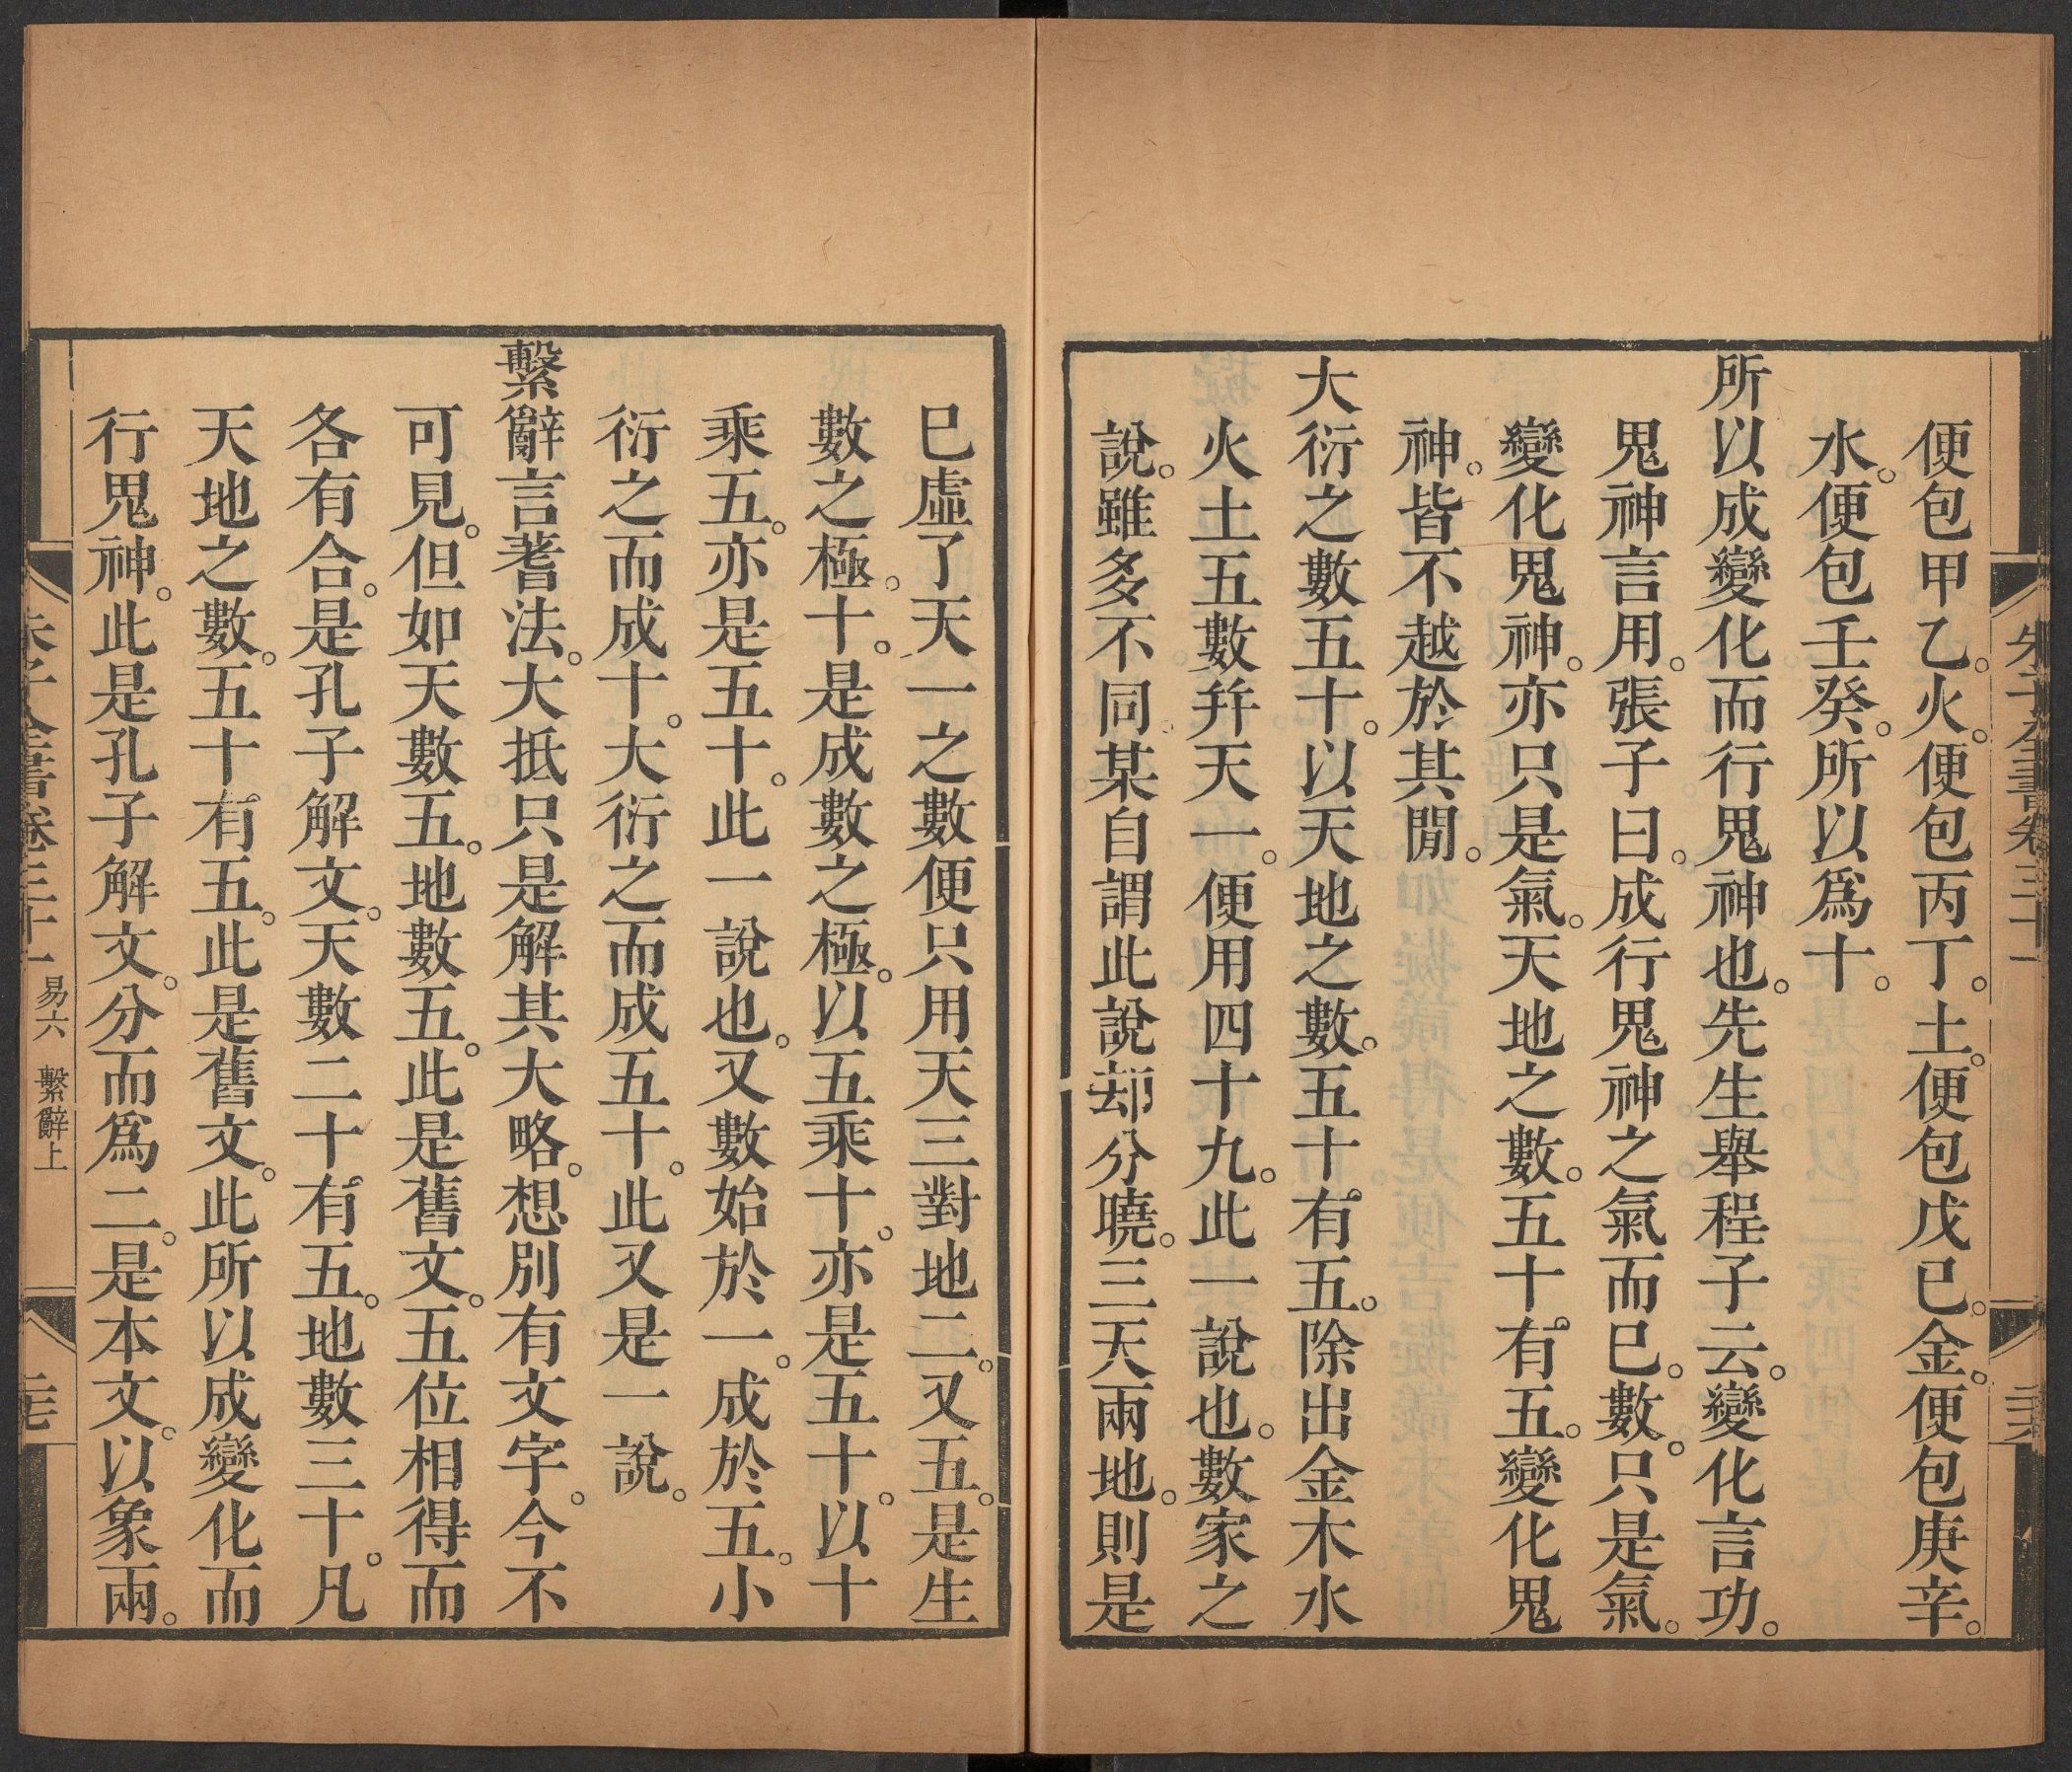 便包甲乙。火。便包丙丁。土。便包戊巳。金。便包庚辛。
水。便包壬癸。所以爲十。
所以成變化而行鬼神也。先生舉程子云。變化言功。
鬼神言用。張子曰。成行鬼神之氣而巳。數。只是氣。
變化鬼神。亦只是氣。天地之數。五十。有五。變化鬼
神。皆不越於其閒。
大衍之數五十。以天地之數。五十。有五。除出金木水
火土五數幷天一。便用四十九。此一說也。數家之
說。雖多不同。某自謂此說却分曉。三天兩地。則是
巳虛了天一之數便只用天三對地二。又五。是生
數之極。十。是成數之極。以五乘十。亦是五十。以十
乘五。亦是五十。此一說也。又數始於一。成於五。小
衍之而成十。大衍之而成五十。此又是一說。
繫辭言蓍法。大抵只是解其大略。想別有文字。今不
可見。但如天數五。地數五。此是舊文。五位相得而
各有合。是孔子解文。天數二十。有五。地數三十。凡
天地之數。五十。有五。此是舊文。此所以成變化而
行鬼神。此是孔子解文。分而爲二。是本文。以象兩。
朱子全書卷三十一 易六 繫辭上